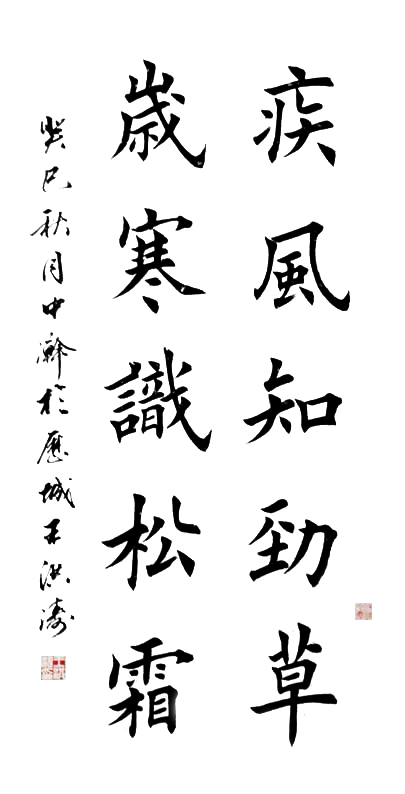 疾風知勁草
歲寒識松霜
癸巳秋月中澣於歷城王洪濤